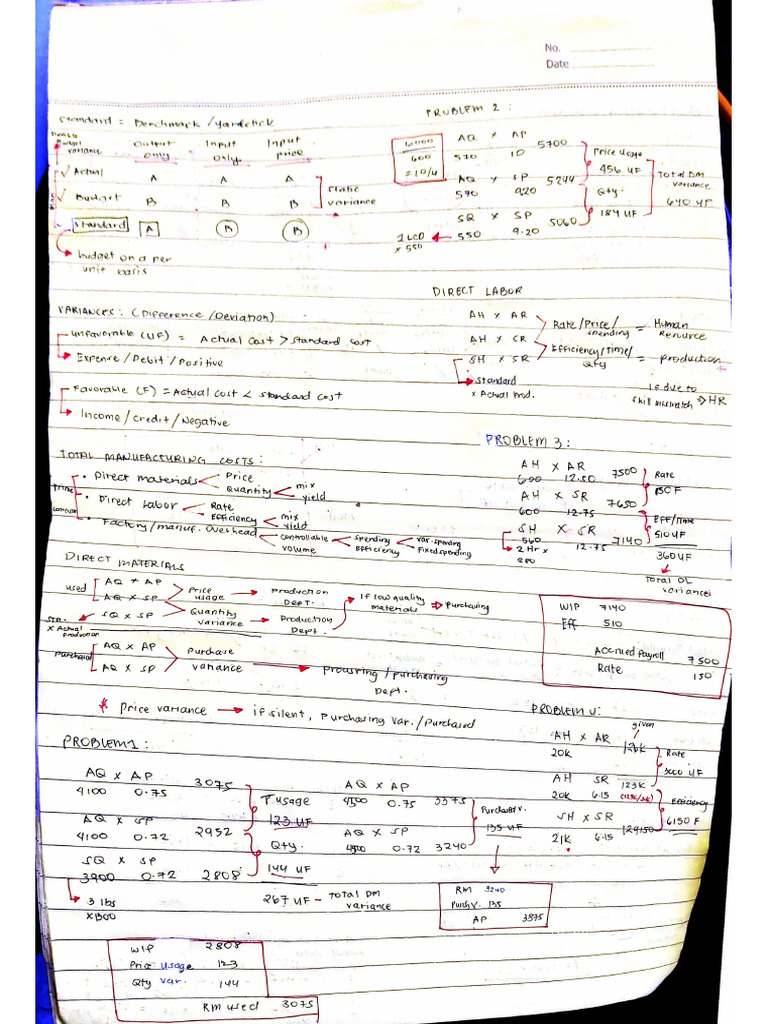 No.
Date
Standard = Benchmark / Yardstick
variance Output only Input only Input price
Actual A A A
Budget B B B
Static variance
Standard A B B
budget on a per unit basis
VARIANCES: (Difference / Deviation)
Unfavorable (UF) = Actual Cost > Standard Cost
Expense / Debit / Positive
Favorable (F) = Actual Cost < Standard Cost
Income / Credit / Negative
TOTAL MANUFACTURING COSTS:
Prime
• Direct Materials
Price
Quantity
mix
yield
• Direct Labor
Rate
Efficiency
mix
yield
• Factory/manuf. Overhead
controllable
volume
spending
Efficiency
var. spending
Fixed spending
DIRECT MATERIALS
used
AQ x AP
AQ x SP
SQ x SP
Price usage → Production Dept.
Quantity variance → Production Dept.
If low quality materials ⇒ Purchasing
STD. x Actual production
Purchased
AQ x AP
AQ x SP
Purchase variance → Procuring / purchasing Dept.
* Price variance → if silent, Purchasing Var. / Purchased
PROBLEM 1:
AQ x AP
4100 0.75 3075
AQ x SP
4100 0.72 2952
SQ x SP
3900 0.72 2808
3 lbs
x1300
P usage
123 UF
Qty.
144 UF
267 UF - Total DM variance
AQ x AP
4500 0.75 3375
AQ x SP
4500 0.72 3240
Purchase v.
135 UF
RM 3240
Purch V. 135
AP 3375
WIP 2808
Price usage 123
Qty var. 144
RM used 3075
PROBLEM 2:
6000
600
= 10/u
AQ x AP 5700
570 10
AQ x SP 5244
570 9.20
SQ x SP 5060
550 9.20
x 550
Price Usage
456 UF
Qty.
184 UF
Total DM variance
640 UF
DIRECT LABOR
AH x AR
AH x SR
SH x SR
Rate / Price / spending = Human Resource
Efficiency / Time / Qty = production
Standard x Actual Prod.
If due to skill mismatch → HR
PROBLEM 3:
AH x AR 7500
600 12.50
AH x SR 7650
600 12.75
SH x SR 7140
560 12.75
2 Hr x
280
Rate
150 F
Eff/time
510 UF
360 UF
Total DL variance
WIP 7140
Eff 510
Accrued Payroll 7500
Rate 150
given
AH x AR 126K
20K
AH SR 123K
20K 6.15
SH x SR 129150
21K 6.15
Rate
3000 UF
Efficiency
6150 F